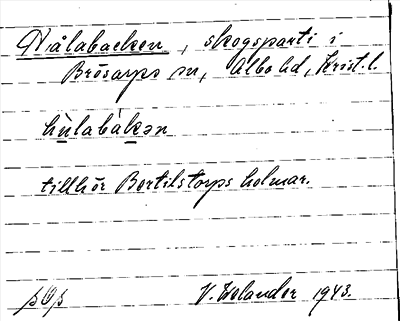 Hjulabacken, skogsparti i
Brösarps sn, Albo hd, Krist. l.
hùlabákən
tillhör Bertilstorps holmar.
V. Helander 1943.